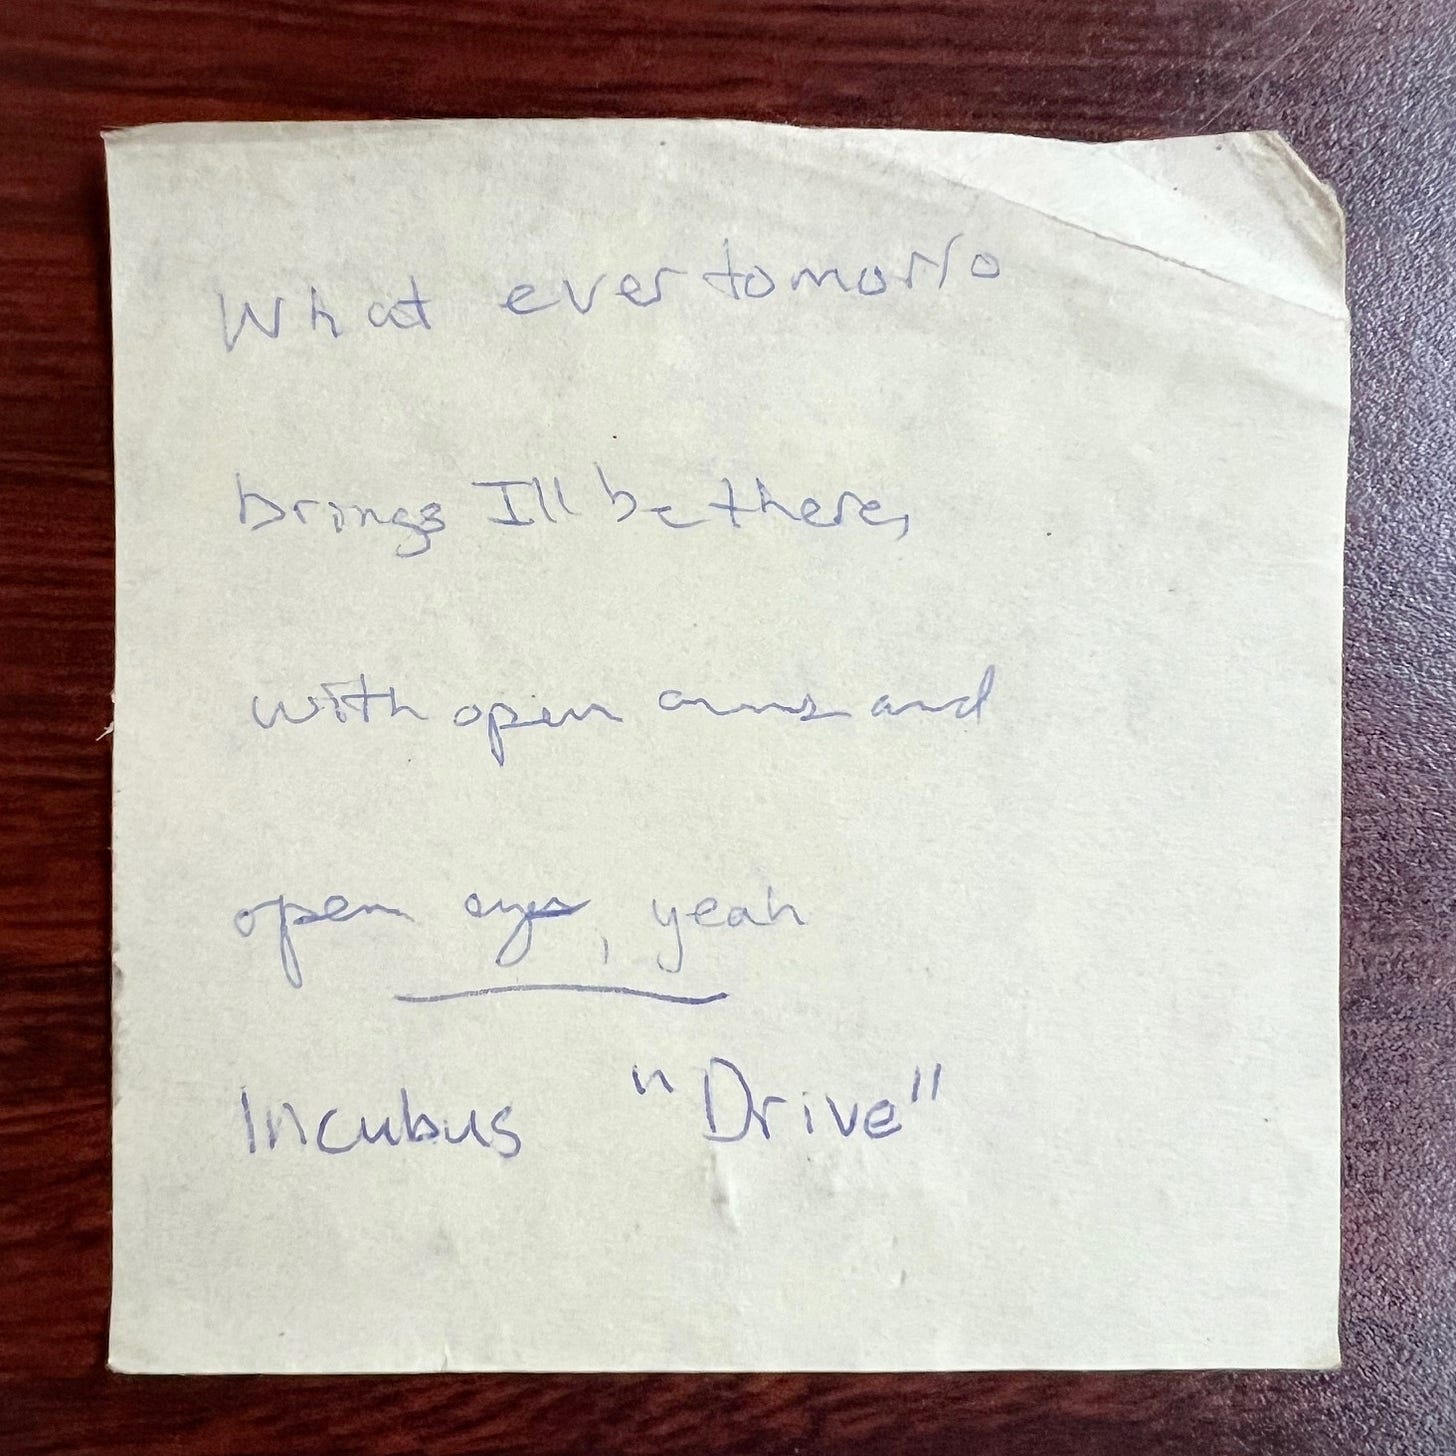 What ever tomorro
brings Ill be there,
with open arms and
open eyes, yeah
Incubus "Drive"